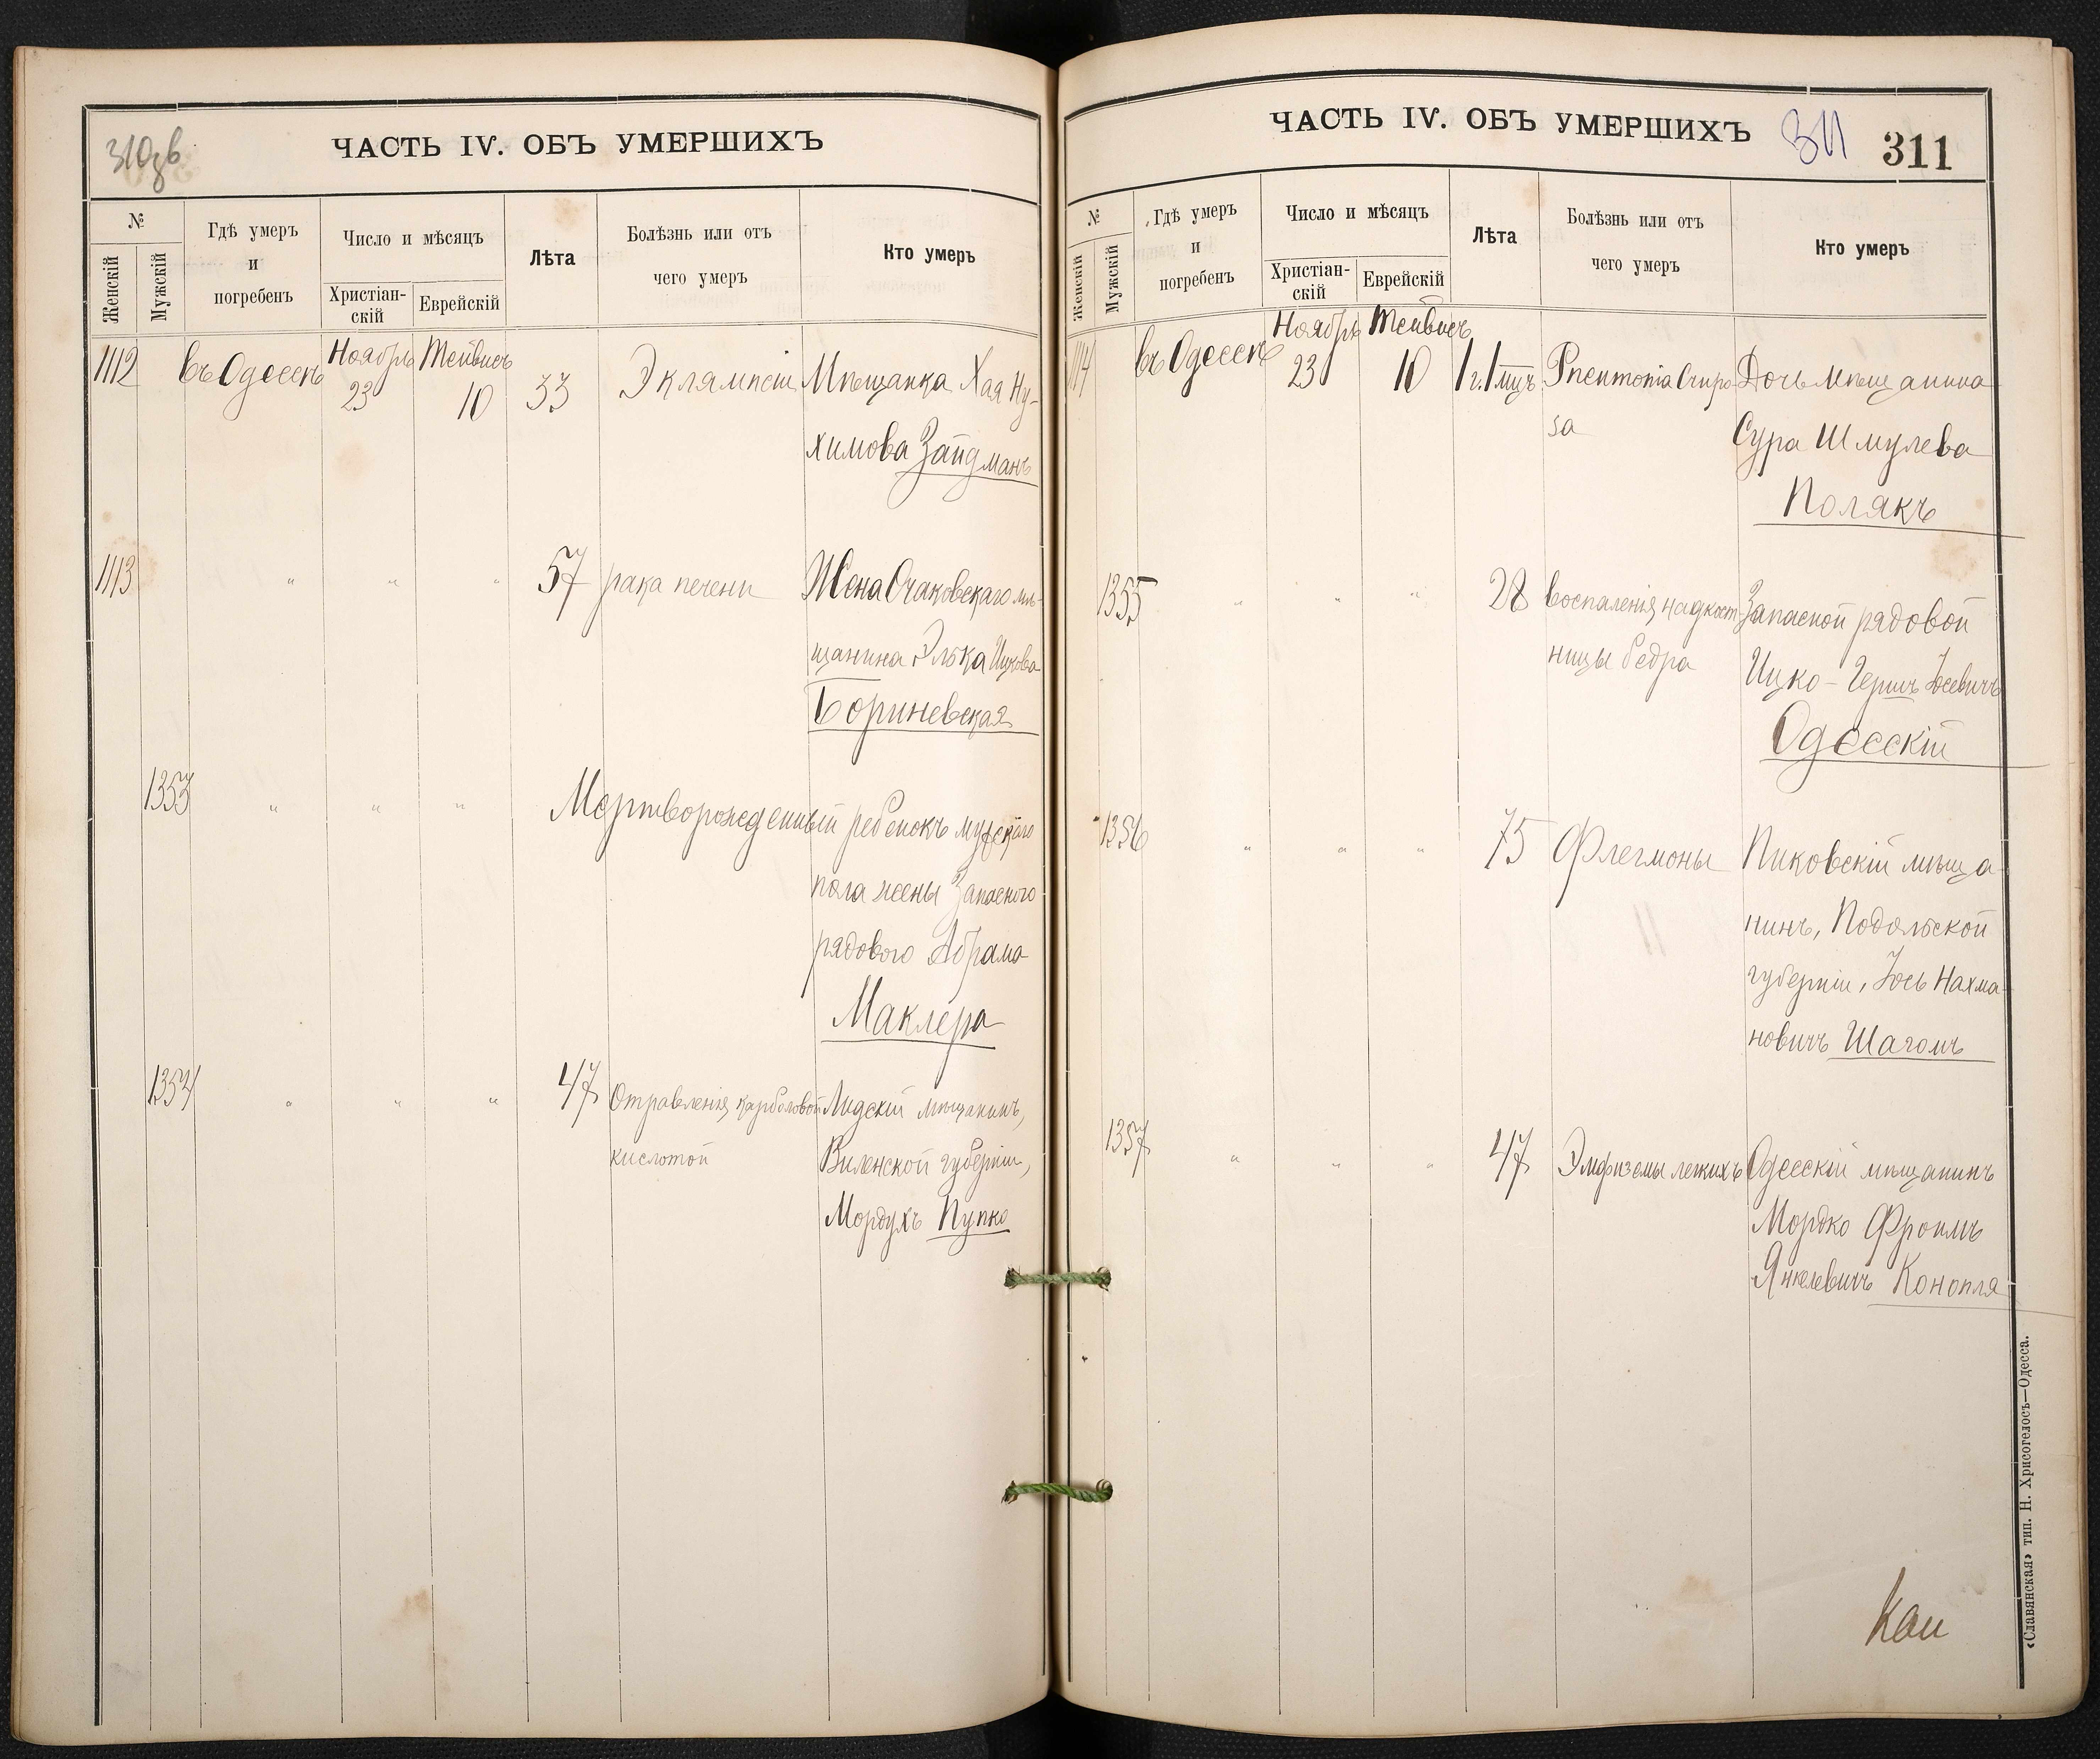 310зв
ЧАСТЬ IV. ОБЪ УМЕРШИХЪ
№
Женскій
Мужскій
Гдѣ умеръ
и
погребенъ
Число и мѣсяцъ
Христіан-
скій
Еврейскій
Лѣта
Болѣзнь или отъ
чего умеръ
Кто умеръ
1112 въ Одессѣ Ноябрь 23 Тейвисъ 10 33 Эклямпсіи Мѣщанка Хая Ну-
химова Зайдманъ
1113 " " " 57 рака печени Жена Очаковскаго мѣ-
щанина Элька Ицкова
Бориневская
1353 " " " Мертворожденный ребенокъ мужскаго
пола жены Запасного
рядового Абрама
Маклера
1354 " " " 47 Отравленія карболовой Лидскій мѣщанинъ,
кислотой Виленской губерніи,
Мордухъ Пупко
ЧАСТЬ IV. ОБЪ УМЕРШИХЪ
311
311
№
Женскій
Мужскій
Гдѣ умеръ
и
погребенъ
Число и мѣсяцъ
Христіан-
скій
Еврейскій
Лѣта
Болѣзнь или отъ
чего умеръ
Кто умеръ
1114 въ Одессѣ Ноябрь 23 Тейвисъ 10 1 г. 1 мцъ Pneumonia Crupo- Дочь мѣщанина
sa Сура Шмулева
Полякъ
1355 " " " 28 воспаленія надкост- Запасной рядовой
ницы бедра Ицко-Гершъ Іосевичъ
Одесскій
1356 " " " 75 Флегмоны Пиковскій мѣща-
нинъ, Подольской
губерніи, Іось Нахма-
новичъ Шагомъ
1357 " " " 47 Эмфиземы легкихъ Одесскій мѣщанинъ
Мордко Фроимъ
Янкелевичъ Конопля
«Славянская» тип. Н. Хрисогелосъ—Одесса.